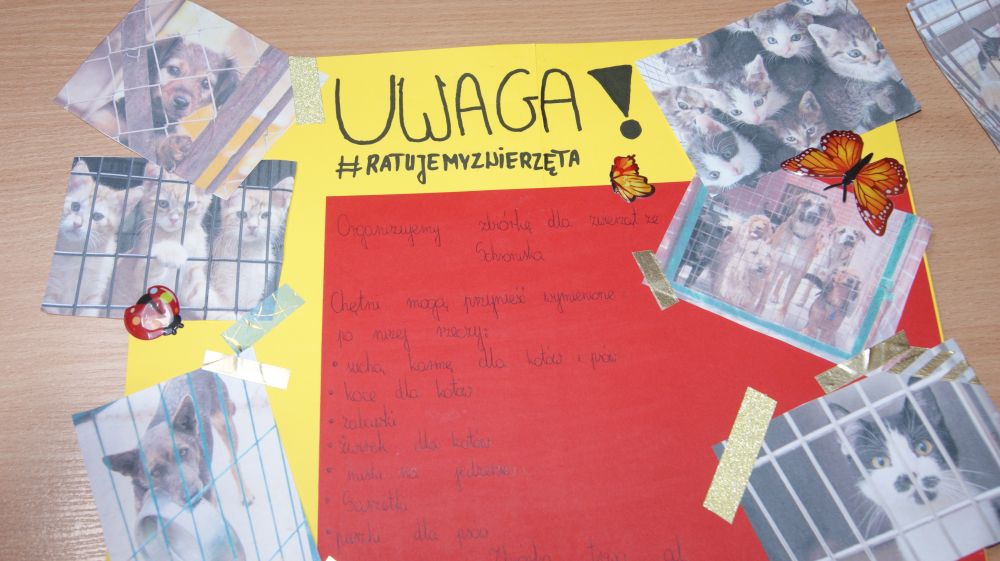 UWAGA!
#RATUJEMYZWIERZĘTA
Organizujemy zbiórkę dla zwierząt ze
Schroniska
Chętni mogą przynieść wymienione
po niżej rzeczy:
• suchą karmę dla kotów i psów
• koce dla kotów
• zabawki
• żwirek dla kotów
• miski na jedzenie
• Saszetki
• puszki dla psów
Zbiórka trwa od